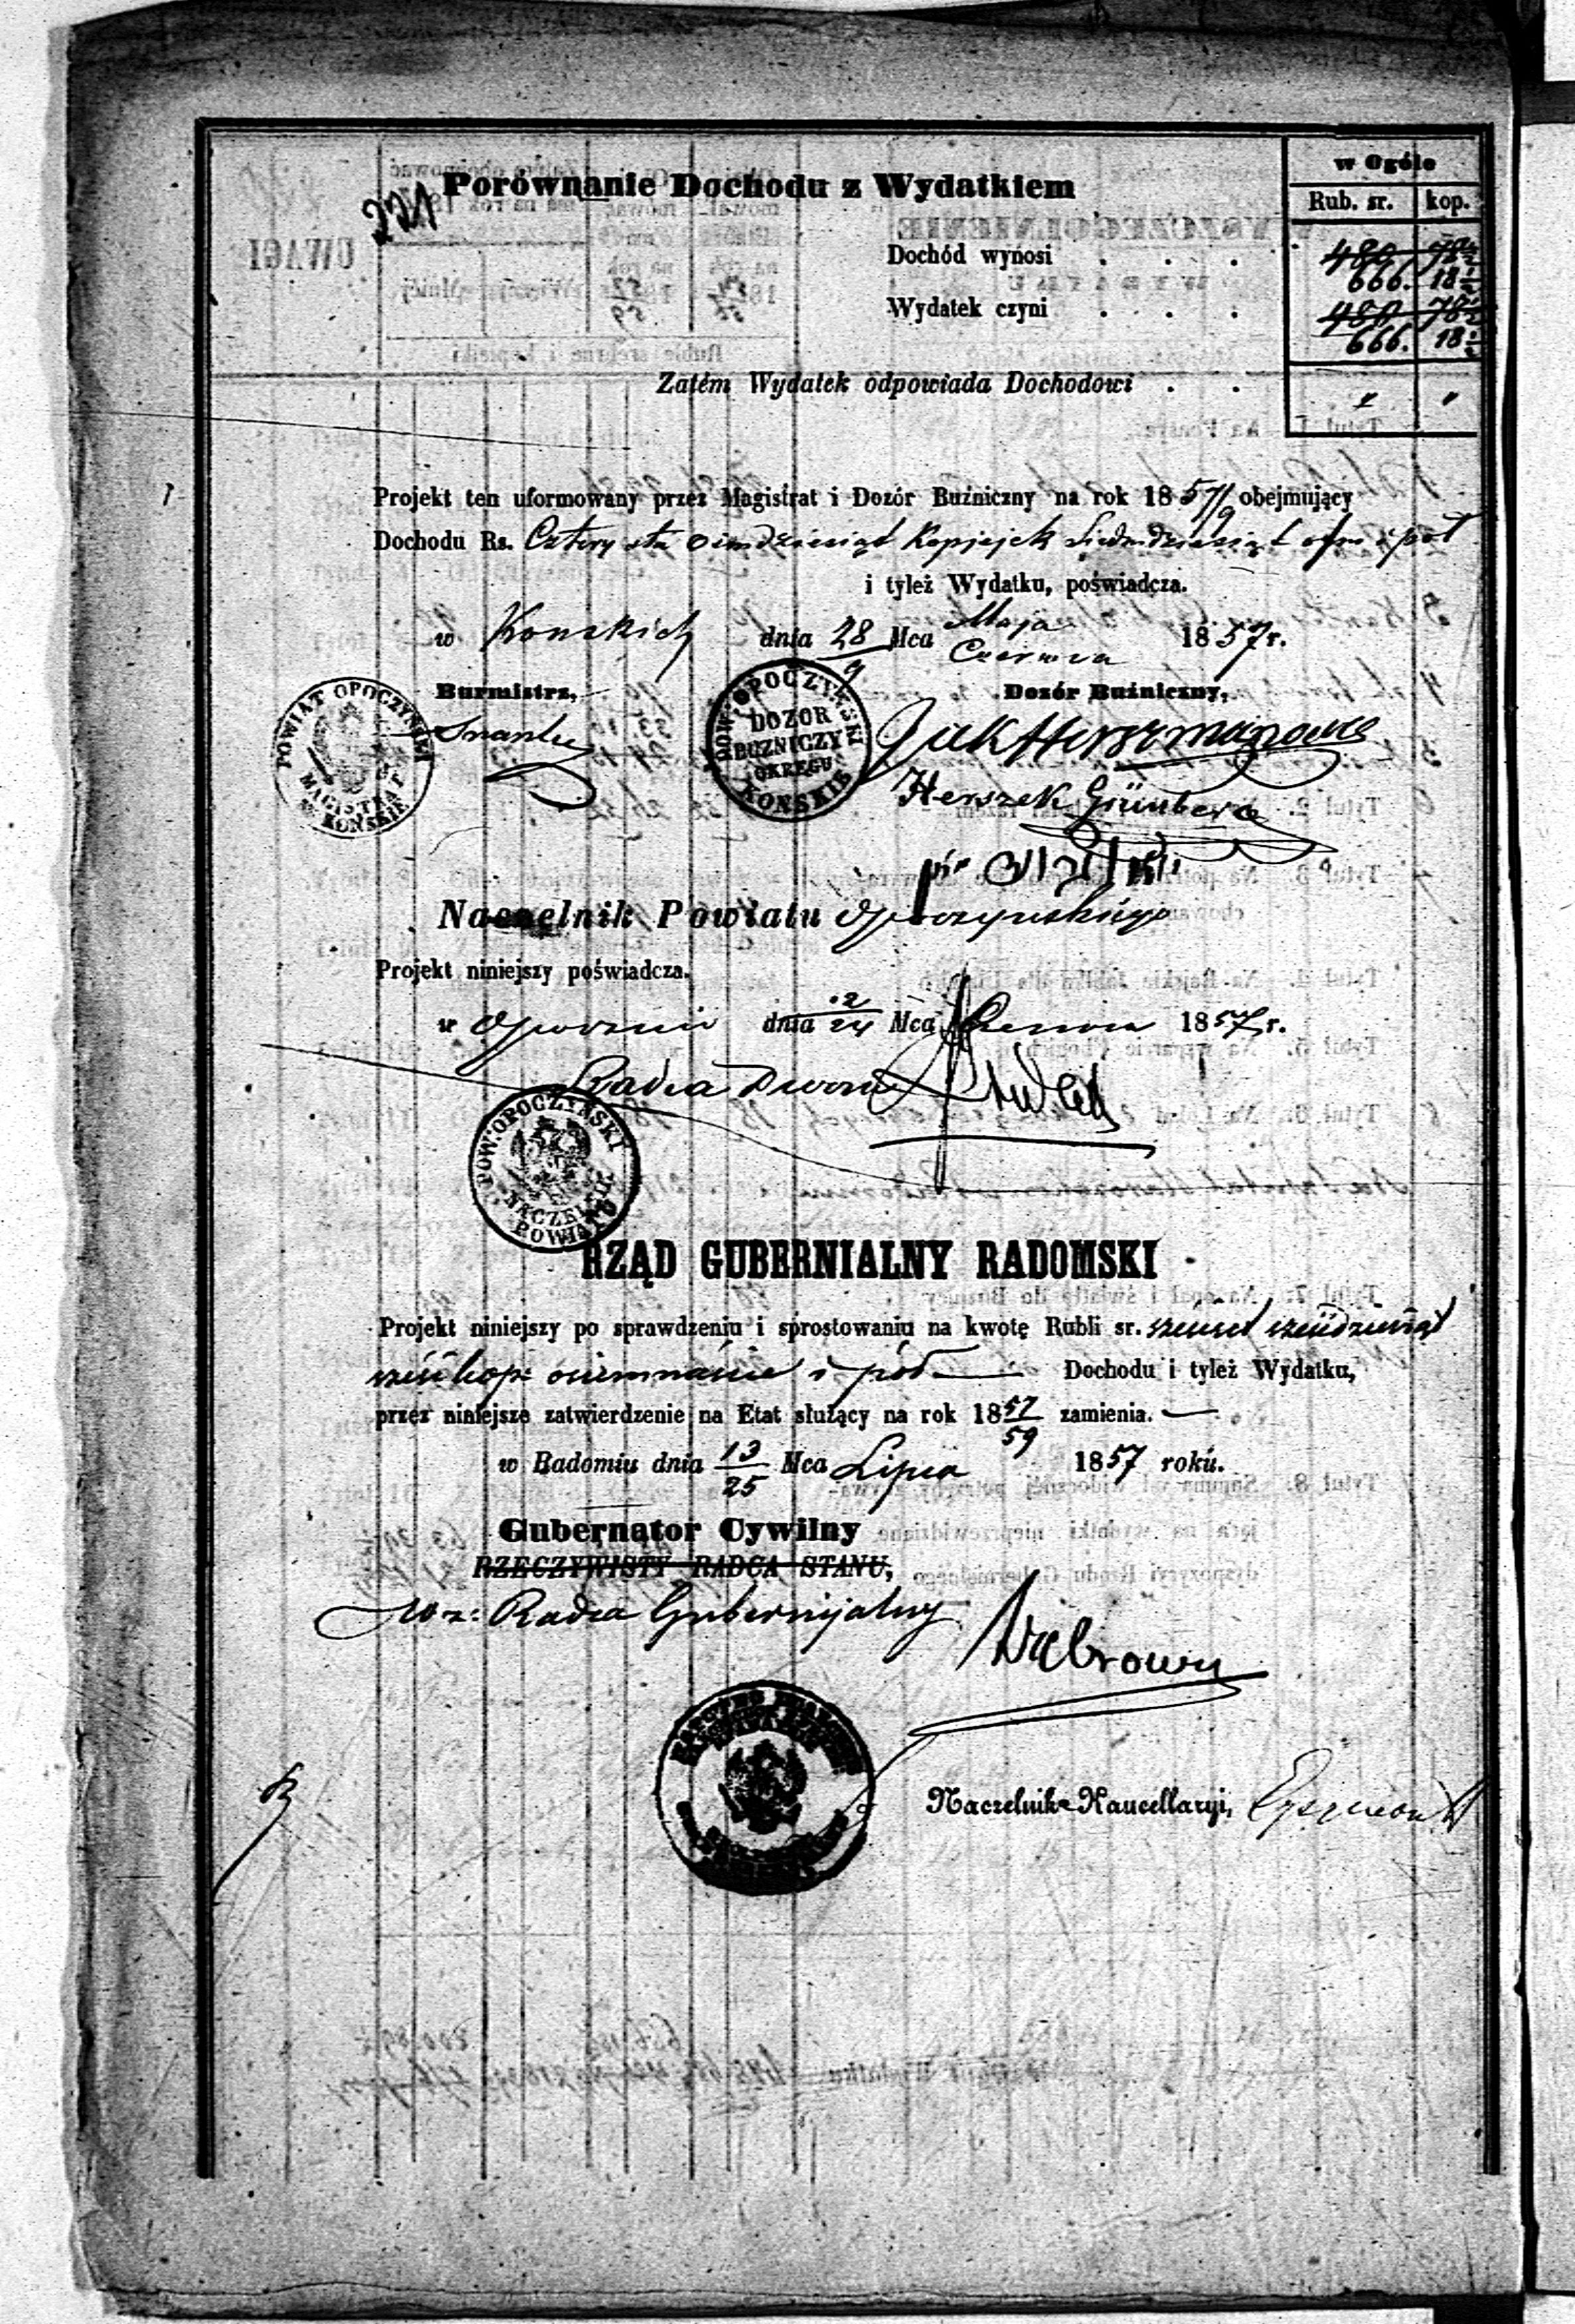 221
Porównanie Dochodu z Wydatkiem
w Ogóle
Rub. sr. kop.
480 78 1/2
Dochód wynosi . . .
666. 18 1/2
Wydatek czyni . . .
480 78 1/2
666. 18 1/2
Zatém Wydatek odpowiada Dochodowi . .
" "
Projekt ten uformowany przez Magistrat i Dozór Buźniczny na rok 1857/9 obejmujący
Dochodu Rs. Cztery sta ośmdziesiąt Kopiejek Siedmdziesiąt ośm i pół
i tyleż Wydatku, poświadcza.
w Konskich dnia 28/9 Mca Maja/Czerwca 1857 r.
Burmistrz, Dozór Buźniczny,
POWIAT OPOCZYŃSKI
MAGISTRAT
M. KOŃSKIE
POW. OPOCZYŃSKI
DOZOR
BUZNICZY
OKRĘGU
KOŃSKIE
Herszek Grünberg
Naczelnik Powiatu Opoczynskiego
Projekt niniejszy poświadcza.
w Opocznie dnia 12/24 Mca Czerwca 1857 r.
Radca Dworu
POW. OPOCZYŃSKI
NACZELNIK
POWIATU
RZĄD GUBERNIALNY RADOMSKI
Projekt niniejszy po sprawdzeniu i sprostowaniu na kwotę Rubli sr. szesset szesdziesiąt
sześć kop: osiemnaście i pół Dochodu i tyleż Wydatku,
przez niniejsze zatwierdzenie na Etat służący na rok 1857/59 zamienia.
w Radomiu dnia 13/25 Mca Lipca 1857 roku.
Gubernator Cywilny
RZECZYWISTY RADCA STANU,
w z: Radca Gubernijalny
Naczelnik Kancellaryi,